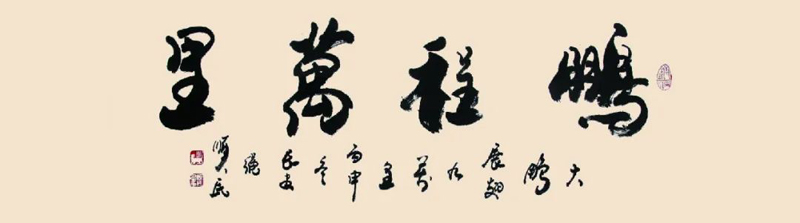 鵬程萬里
大鵬展翅九萬里丙申冬長安
順民